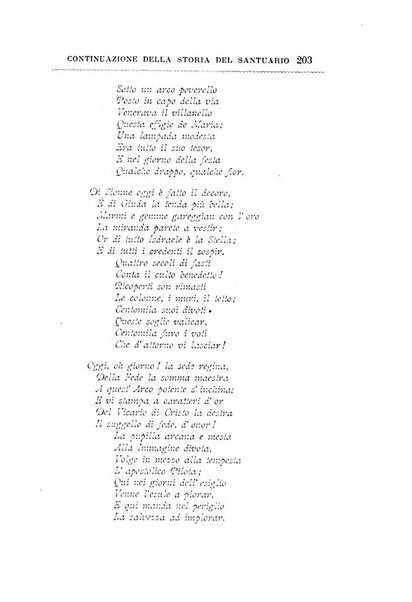 CONTINUAZIONE DELLA STORIA DEL SANTUARIO 203
Sotto un arco poverello
Posto in capo della via
Venerava il villanello
Questa effigie de Maria;
Una lampada modesta
Era tutto il suo tesor,
E nel giorno della festa
Qualche drappo, qualche fior.
Di Sionne oggi è fatto il decoro,
E di Giuda la tenda più bella;
Marmi e gemme gareggian con l'oro
La miranda parete a vestir;
Or di tutto Isdraele è la Stella;
E di tutti i credenti il sospir.
Quattro secoli di fasti
Conta il culto benedetto!
Ricoperti son rimasti
Le colonne, i muri, il tetto;
Centomila suoi divoti
Queste soglie valicar,
Centomila furo i voti
Che d'attorno vi lasciar!
Oggi, oh giorno! la sede regina,
Della Fede la somma maestra
A quest' Arco potente s'inchina;
E vi stampa a caratteri d'or
Del Vicario di Cristo la destra
Il suggello di fede, d'onor!
La pupilla arcana e mesta
Alla Immagine divota,
Volge in mezzo alla tempesta
L' apostolico Pilota;
Qui nei giorni dell'esiglio
Venne l'esule a plorar,
E qui manda nel periglio
La salvezza ad implorar.